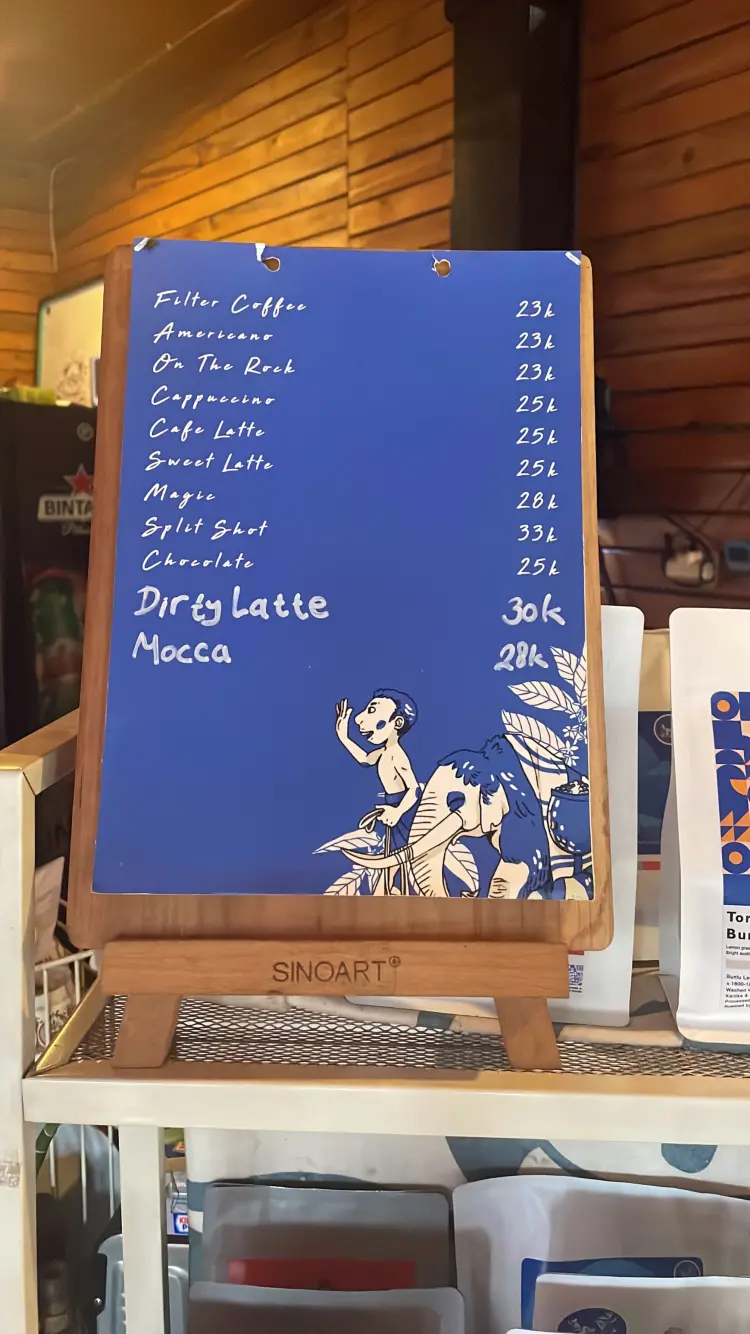 Filter Coffee 23k
Americano 23k
On The Rock 23k
Cappuccino 25k
Cafe Latte 25k
Sweet Latte 25k
Magic 28k
Split Shot 33k
Chocolate 25k
Dirty Latte 30k
Mocca 28k
SINOART®
BINTA
Tor
Bur